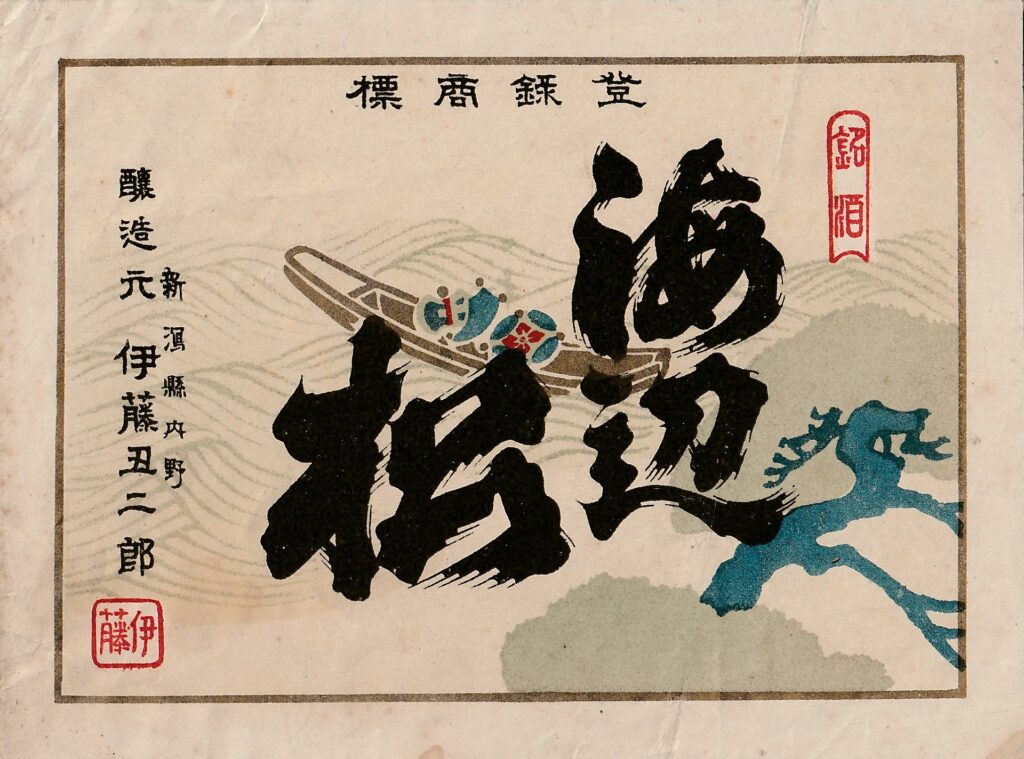 登錄商標
銘酒
海辺
松
新潟縣内野
釀造元 伊藤丑二郎
伊藤